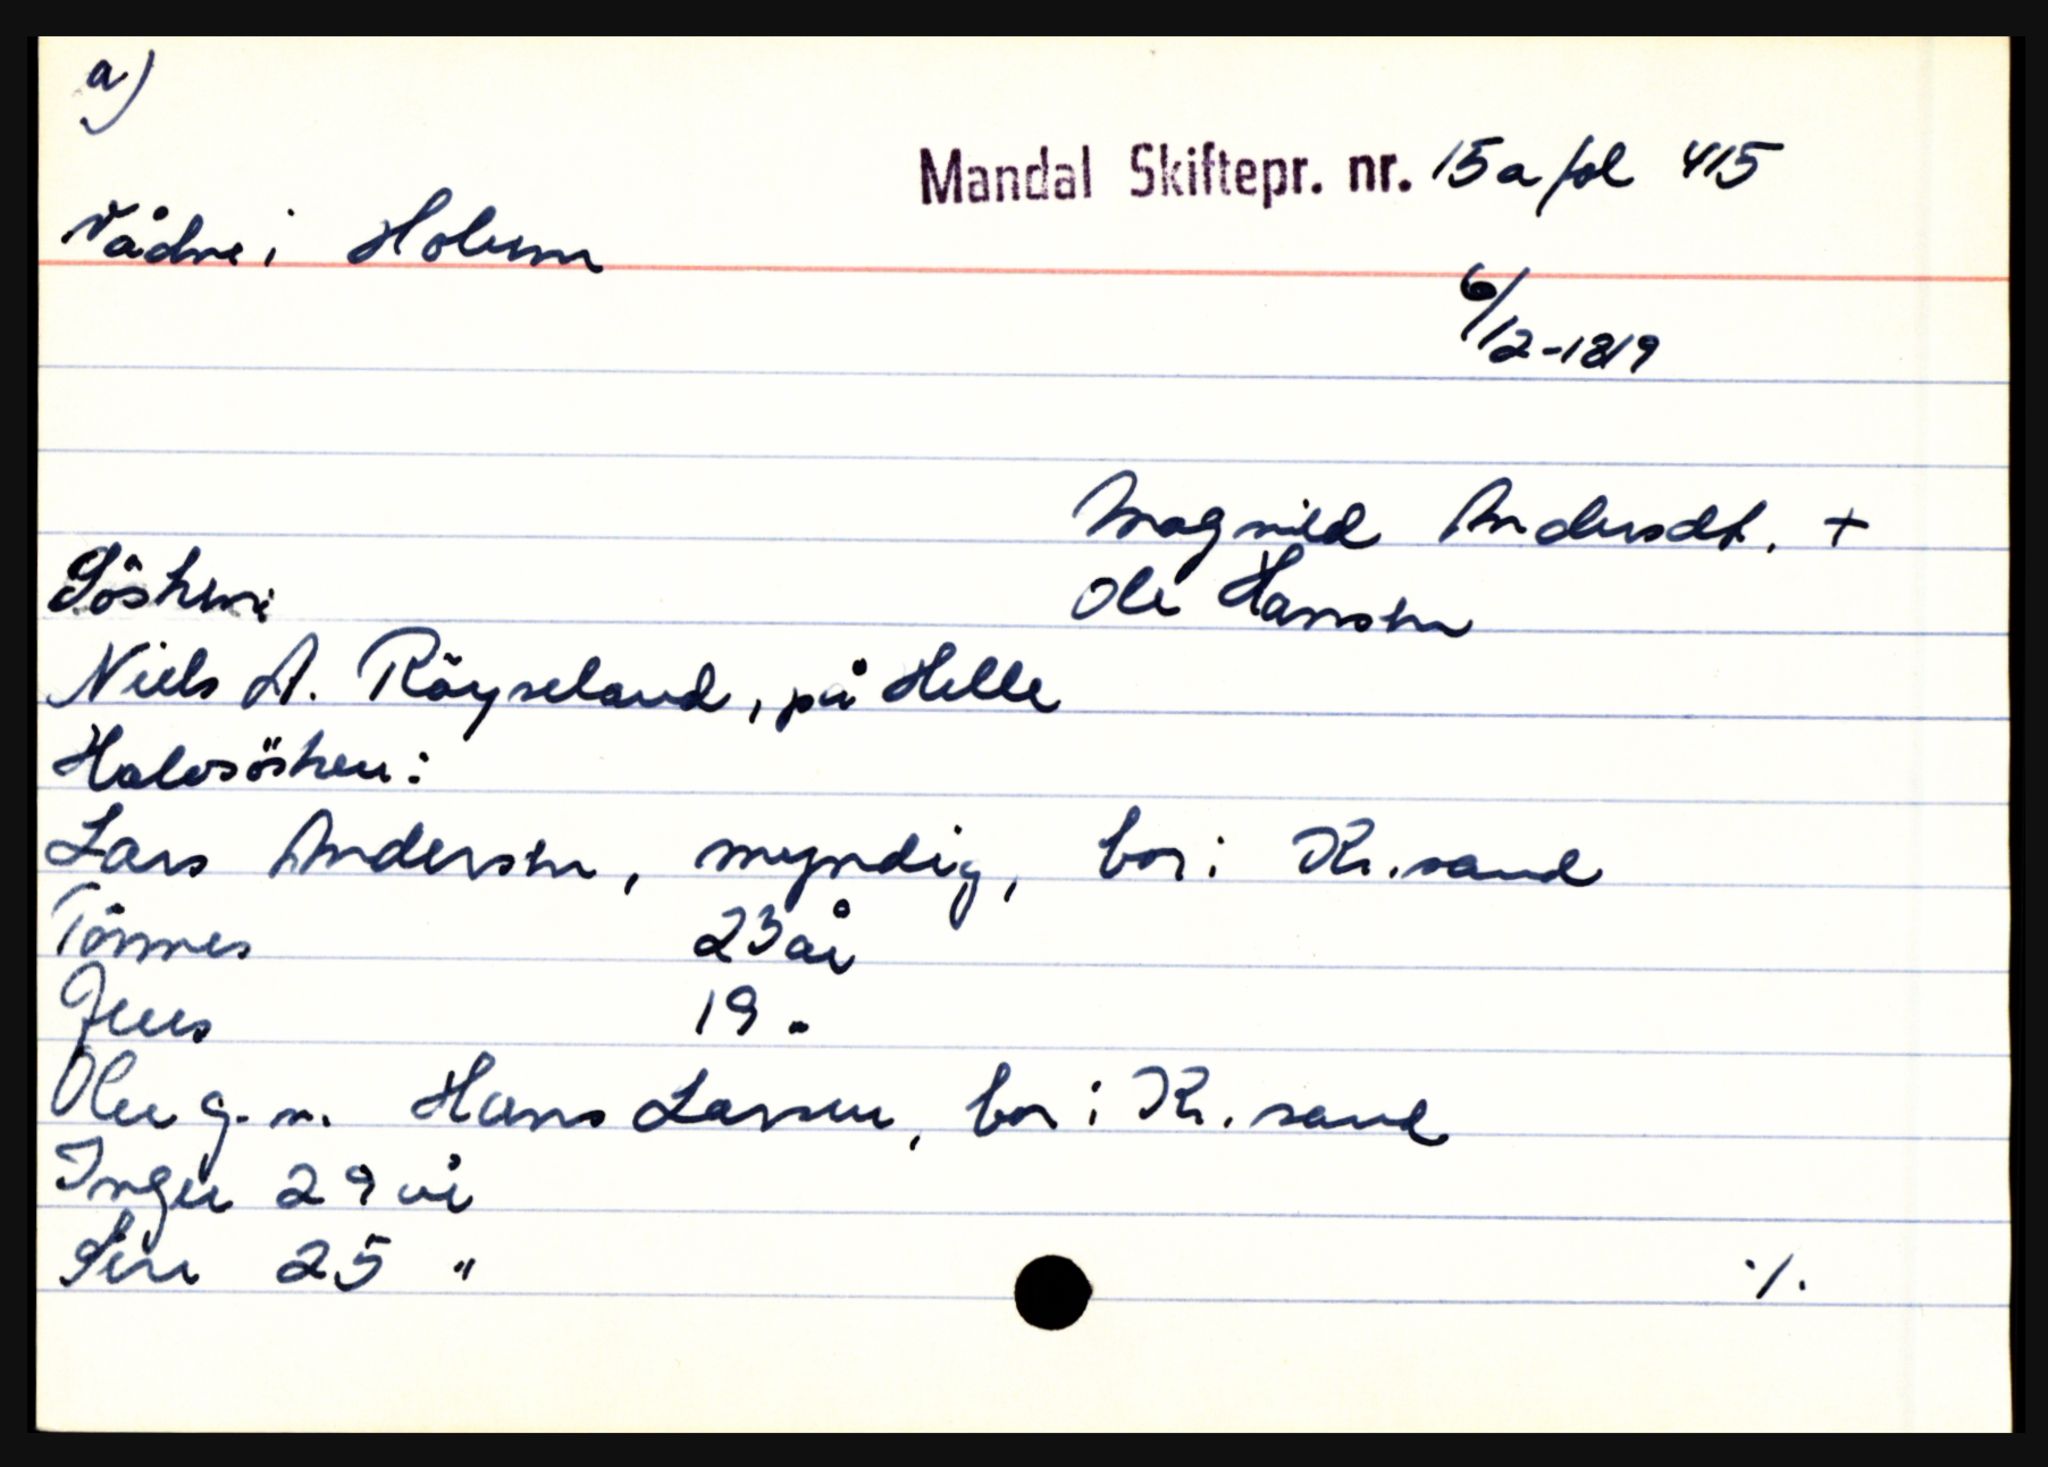 a)
Mandal Skiftepr. nr. 15a fol 415
Vådne i Holum
6/12-1819
Magnild Andersdt. +
Ole Hansen
Søsken:
Niels A. Röyseland, på Helle
Halvsösken:
Lars Andersen, myndig, bor i Kr.sand
Tönnes 23 år
Jens 19 "
Olea g.m. Hans Larsen, bor i Kr.sand
Inger 29 år
Siri 25 "
./.